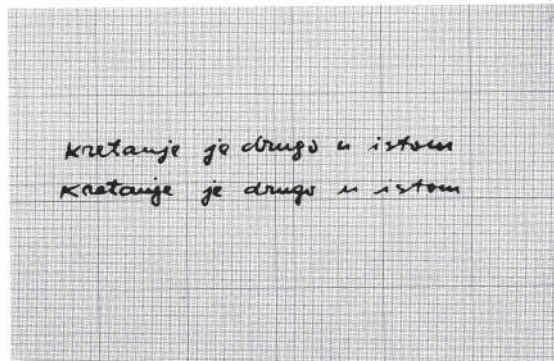 kretanje je drugo u istom
kretanje je drugo u istom